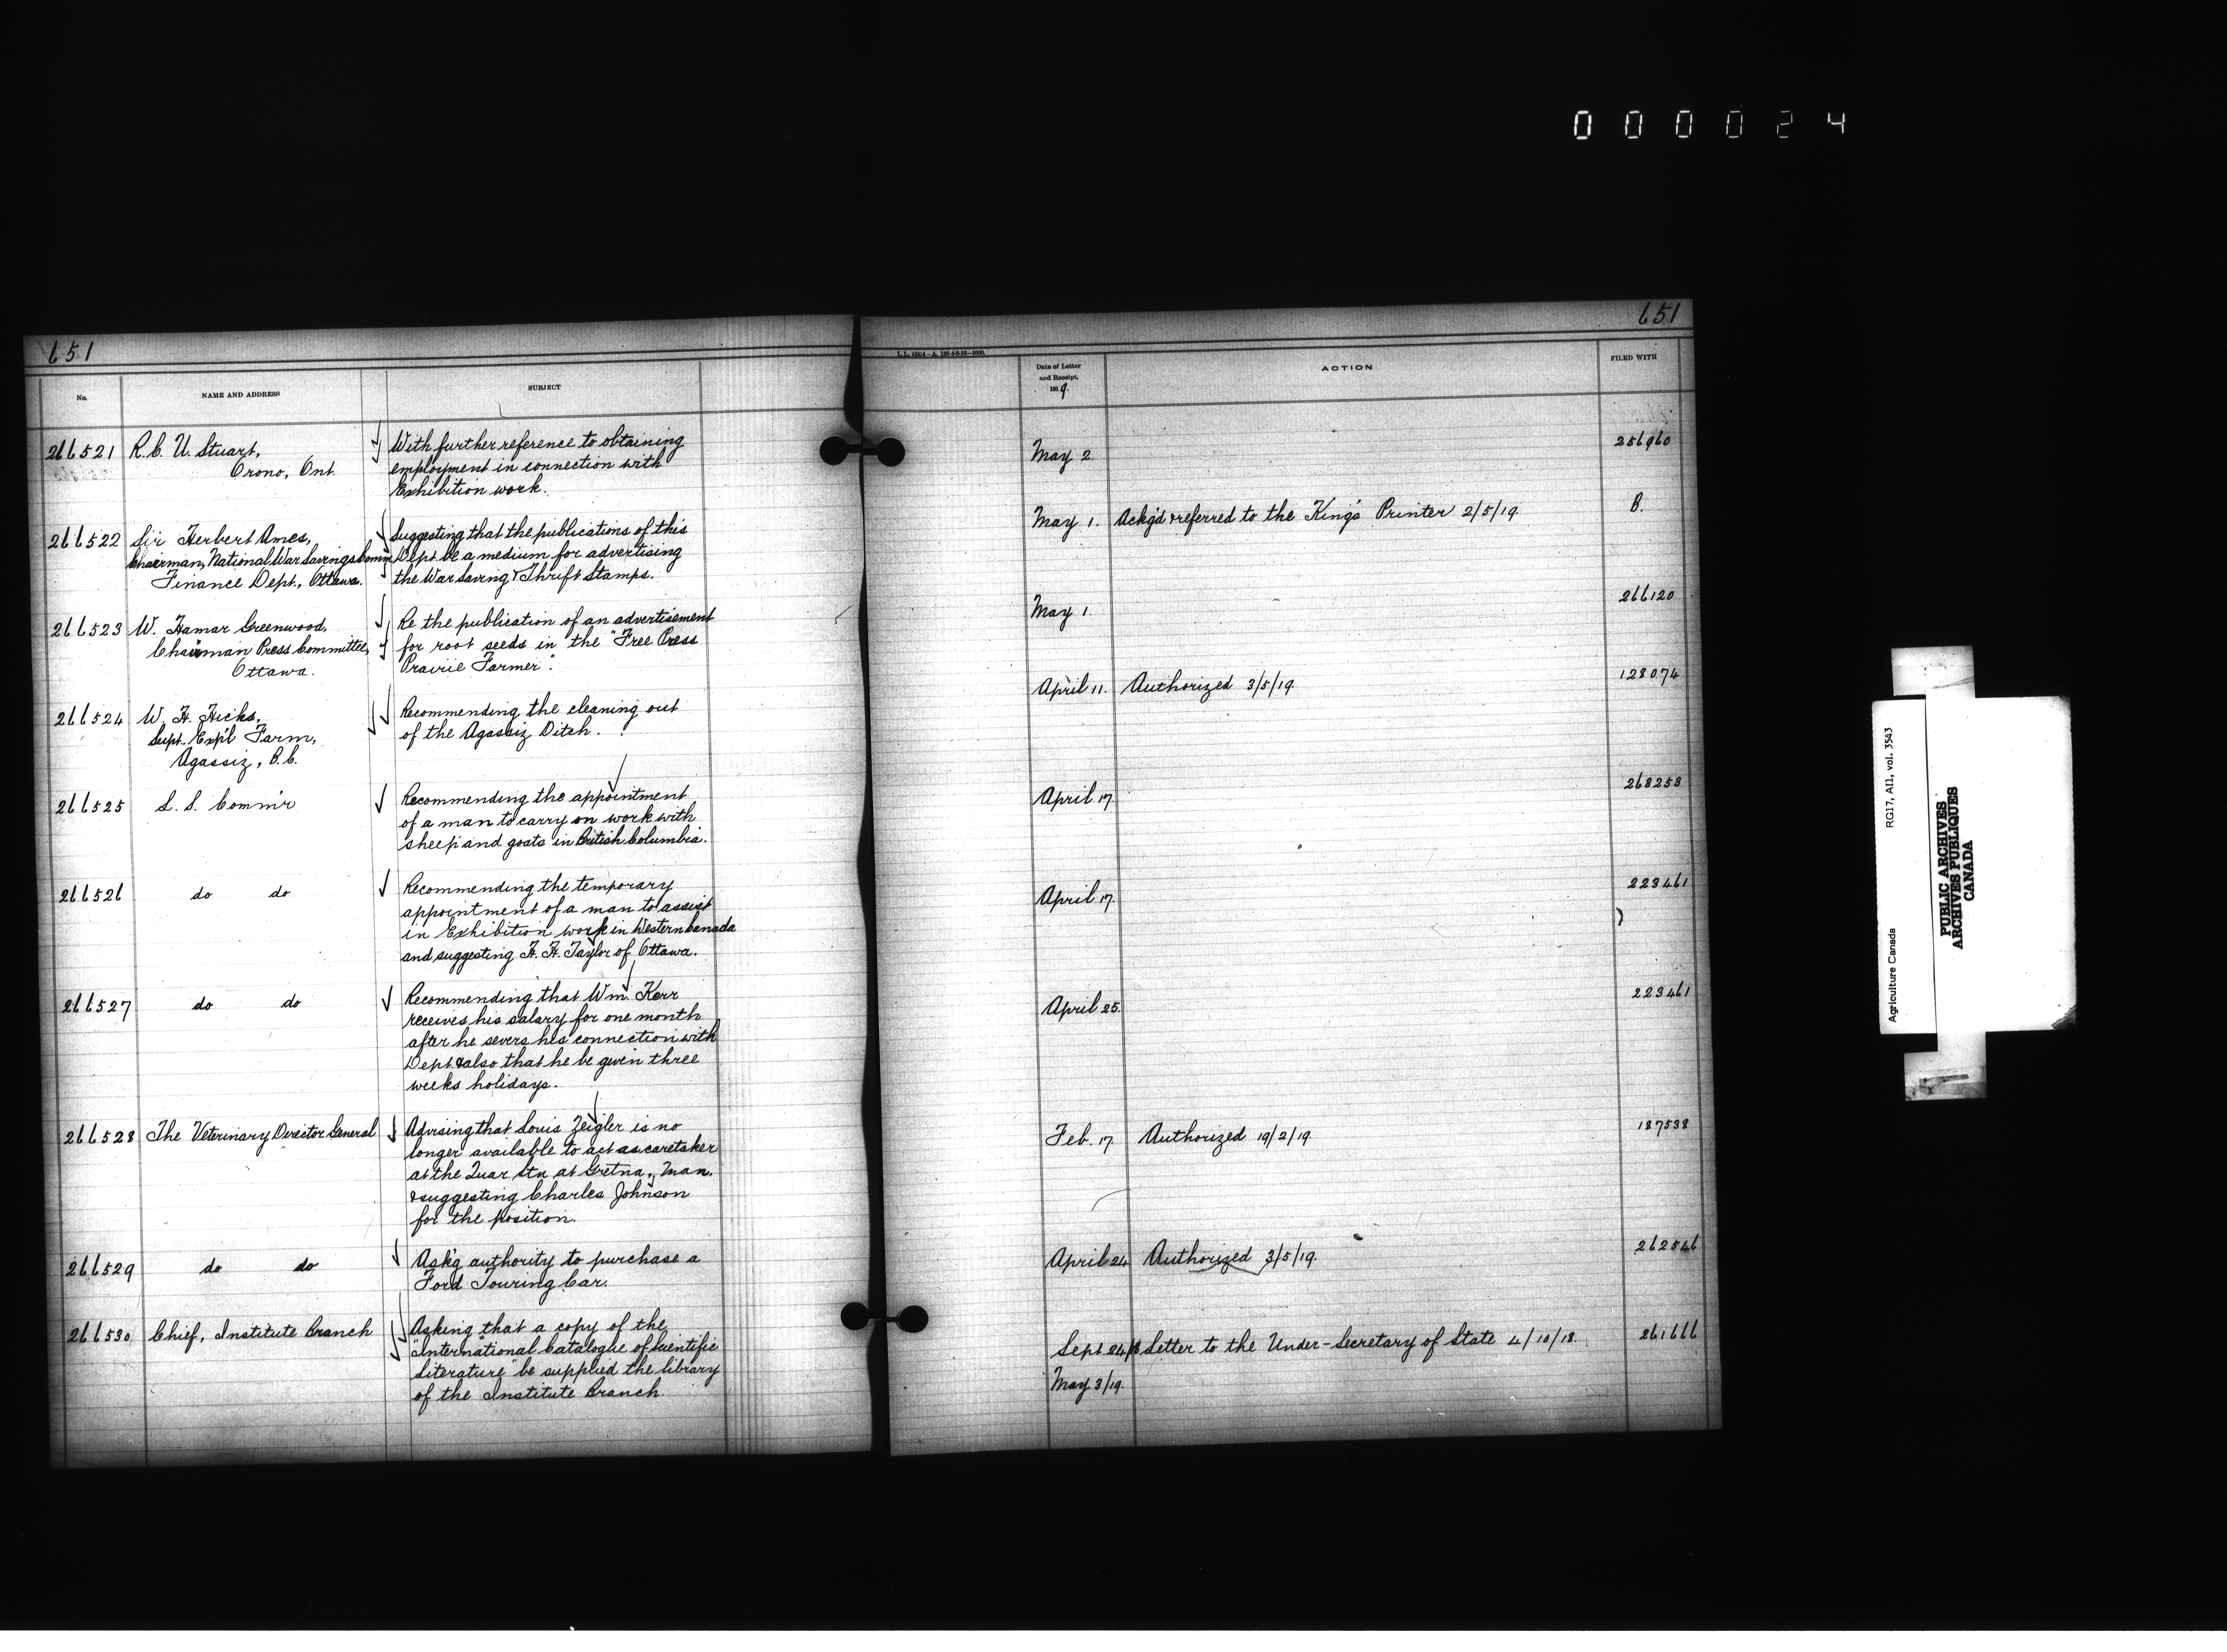 000024
651
No.
NAME AND ADDRESS
SUBJECT
266521
R. C. U. Stuart,
Orono, Ont.
With further reference to obtaining
employment in connection with
Exhibition work.
266522
Sir Herbert Ames,
Chairman, National War Savings Comm
Finance Dept., Ottawa.
Suggesting that the publications of this
Dept. be a medium for advertising
the War Saving & Thrift Stamps.
266523
W. Hamar Greenwood,
Chairman Press Committee,
Ottawa.
Re the publication of an advertisement
for root seeds in the "Free Press
Prairie Farmer".
266524
W. H. Hicks,
Supt. Exp'l Farm,
Agassiz, B.C.
Recommending the cleaning out
of the Agassiz Ditch.
266525
L. S. Comm'r
Recommending the appointment
of a man to carry on work with
sheep and goats in British Columbia.
266526
do do
Recommending the temporary
appointment of a man to assist
in Exhibition work in Western Canada
and suggesting H. H. Taylor of Ottawa.
266527
do do
Recommending that Wm. Kerr
receives his salary for one month
after he severs his connection with
Dept. & also that he be given three
weeks holidays.
266528
The Veterinary Director General
Advising that Louis Zeigler is no
longer available to act as caretaker
at the Quar. Stn. at Gretna, Man.
& suggesting Charles Johnson
for the position.
266529
do do
Ask'g authority to purchase a
Ford Touring Car.
266530
Chief, Institute Branch
Asking that a copy of the
"International Catalogue of Scientific
Literature" be supplied the library
of the Institute Branch.
651
Date of Letter
and Receipt,
1919.
ACTION
FILED WITH
May 2.
256960
May 1. Ackg'd & referred to the King's Printer 2/5/19.
B.
May 1.
266120
April 11. Authorized 3/5/19.
128074
April 17.
268253
April 17.
223461
April 25.
223461
Feb. 17. Authorized 19/2/19.
187538
April 24. Authorized 3/5/19.
262546
Sept 24/18 Letter to the Under-Secretary of State 4/10/18.
261666
May 3/19.
Agriculture Canada
RG17, AI1, vol. 3543
PUBLIC ARCHIVES
ARCHIVES PUBLIQUES
CANADA